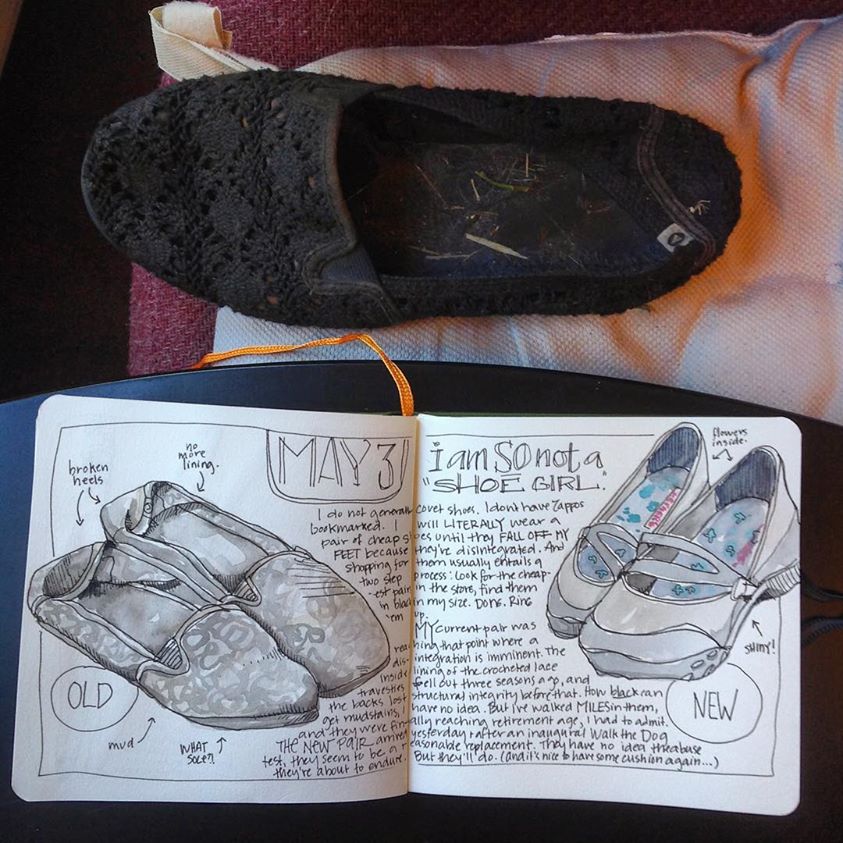 MAY 3
i am SO not a
"SHOE GIRL."
broken
heels
no
more
lining.
flowers
inside.
I do not generally covet shoes. I don't have Zappos
bookmarked. I will LITERALLY wear a
pair of cheap shoes until they FALL OFF MY
FEET because they're disintegrated. And
shopping for them usually entails a
two step process: Look for the cheap-
-est pair in the store, find them
in black in my size. Done. Ring
'em up.
MY current pair was
reaching that point where a
dis-integration is imminent. The
inside lining of the crocheted lace
travesties fell out three seasons ago, and
the backs lost structural integrity before that. How black can
get mudstains, I have no idea. But i've walked MILES in them,
and they were finally reaching retirement age, I had to admit.
THE NEW PAIR arrived yesterday & after an inaugural Walk the Dog
test, they seem to be a reasonable replacement. They have no idea the abuse
they're about to endure. But they'll do. (and it's nice to have some cushion again...)
OLD
mud
WHAT
SOLE?!
SHINY!
NEW